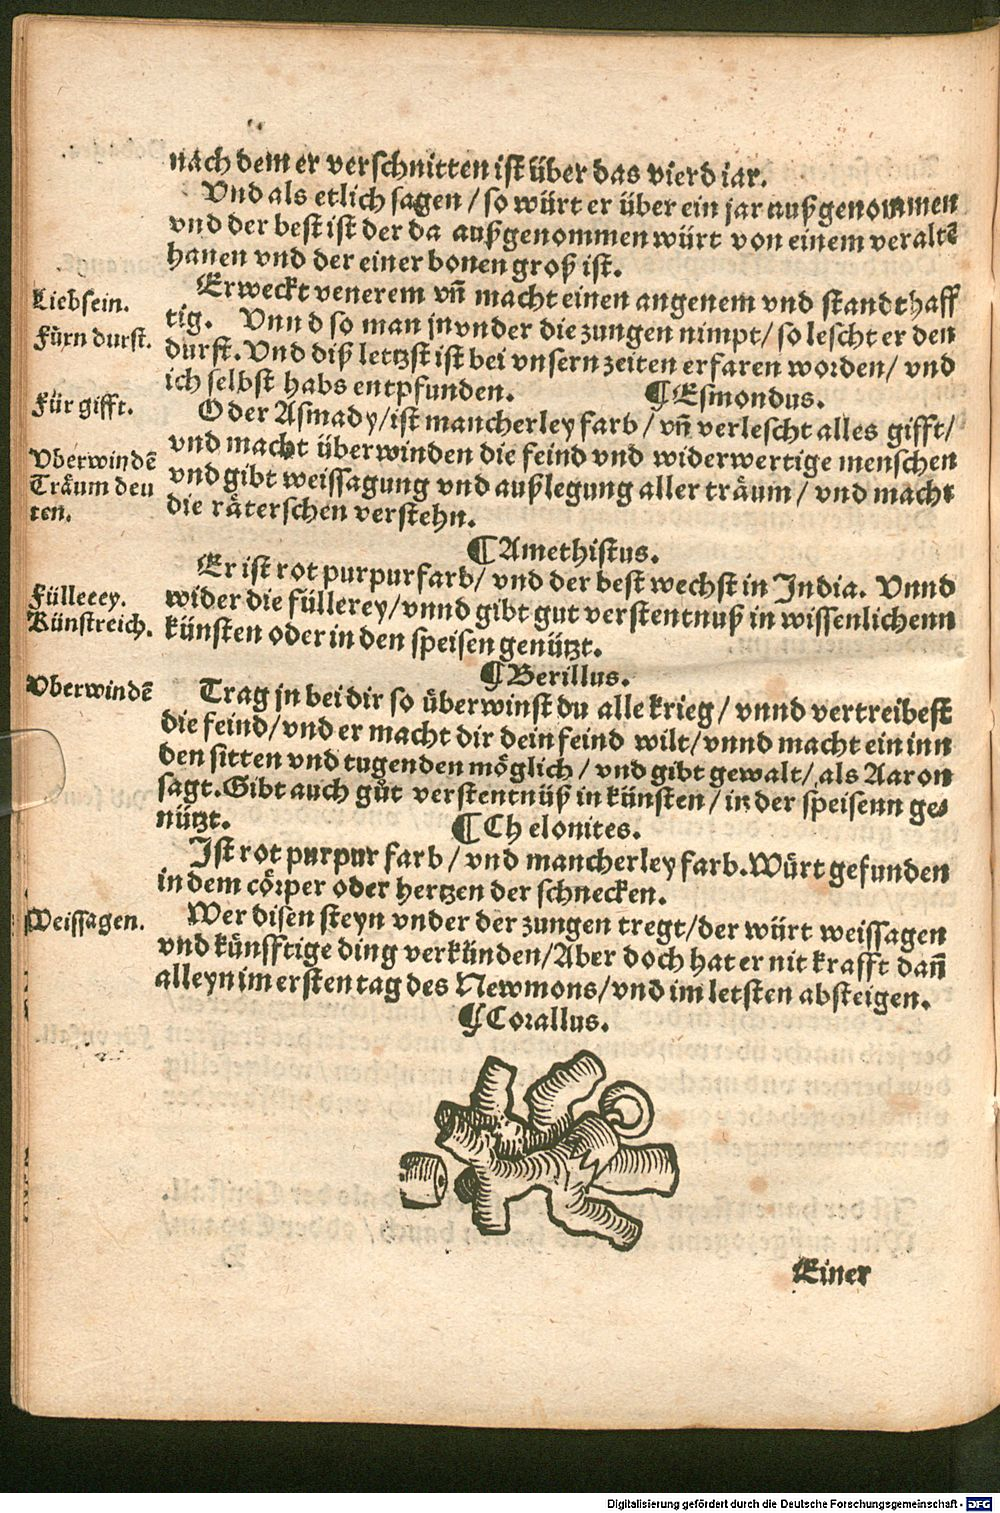 nach dem er verschnitten ist über das vierd iar.
Vnd als etlich sagen / so würt er über ein jar außgenommen
vnd der best ist der da außgenommen würt von einem veraltẽ
hanen vnd der einer bonen groß ist.
Liebsein.
Erweckt venerem vñ macht einen angenem vnd standthaff
tig. Vnnd so man jn vnder die zungen nimpt / so lescht er den
Fürn durst.
durst. Vnd diß letzst ist bei vnsern zeiten erfaren worden / vnd
ich selbst habs entpfunden. ¶ Esmondus.
Für gifft.
Oder Asmady / ist mancherley farb / vñ verlescht alles gifft /
vnd macht überwinden die feind vnd widerwertige menschen
Vberwindẽ
Träum deu
ten.
vnd gibt weissagung vnd außlegung aller träum / vnd macht
die räterschen verstehn.
¶ Amethistus.
Er ist rot purpurfarb / vnd der best wechst in India. Vnnd
Fülleeey.
wider die füllerey / vnnd gibt gut verstentnuß in wissenlichenn
Künstreich.
künsten oder in den speisen genützt.
¶ Berillus.
Vberwindẽ
Trag jn bei dir so überwinst du alle krieg / vnnd vertreibest
die feind / vnd er macht dir dein feind wilt / vnnd macht ein inn
den sitten vnd tugenden möglich / vnd gibt gewalt / als Aaron
sagt. Gibt auch gůt verstentnüß in künsten / in der speisenn ge⸗
nützt. ¶ Ch elonites.
Ist rot purpur farb / vnd mancherley farb. Würt gefunden
in dem cörper oder hertzen der schnecken.
Weissagen.
Wer disen steyn vnder der zungen tregt / der würt weissagen
vnd künfftige ding verkünden / Aber doch hat er nit krafft dañ
alleyn im ersten tag des Newmons / vnd im letsten absteigen.
¶ Corallus.
Einer
Digitalisierung gefördert durch die Deutsche Forschungsgemeinschaft - DFG